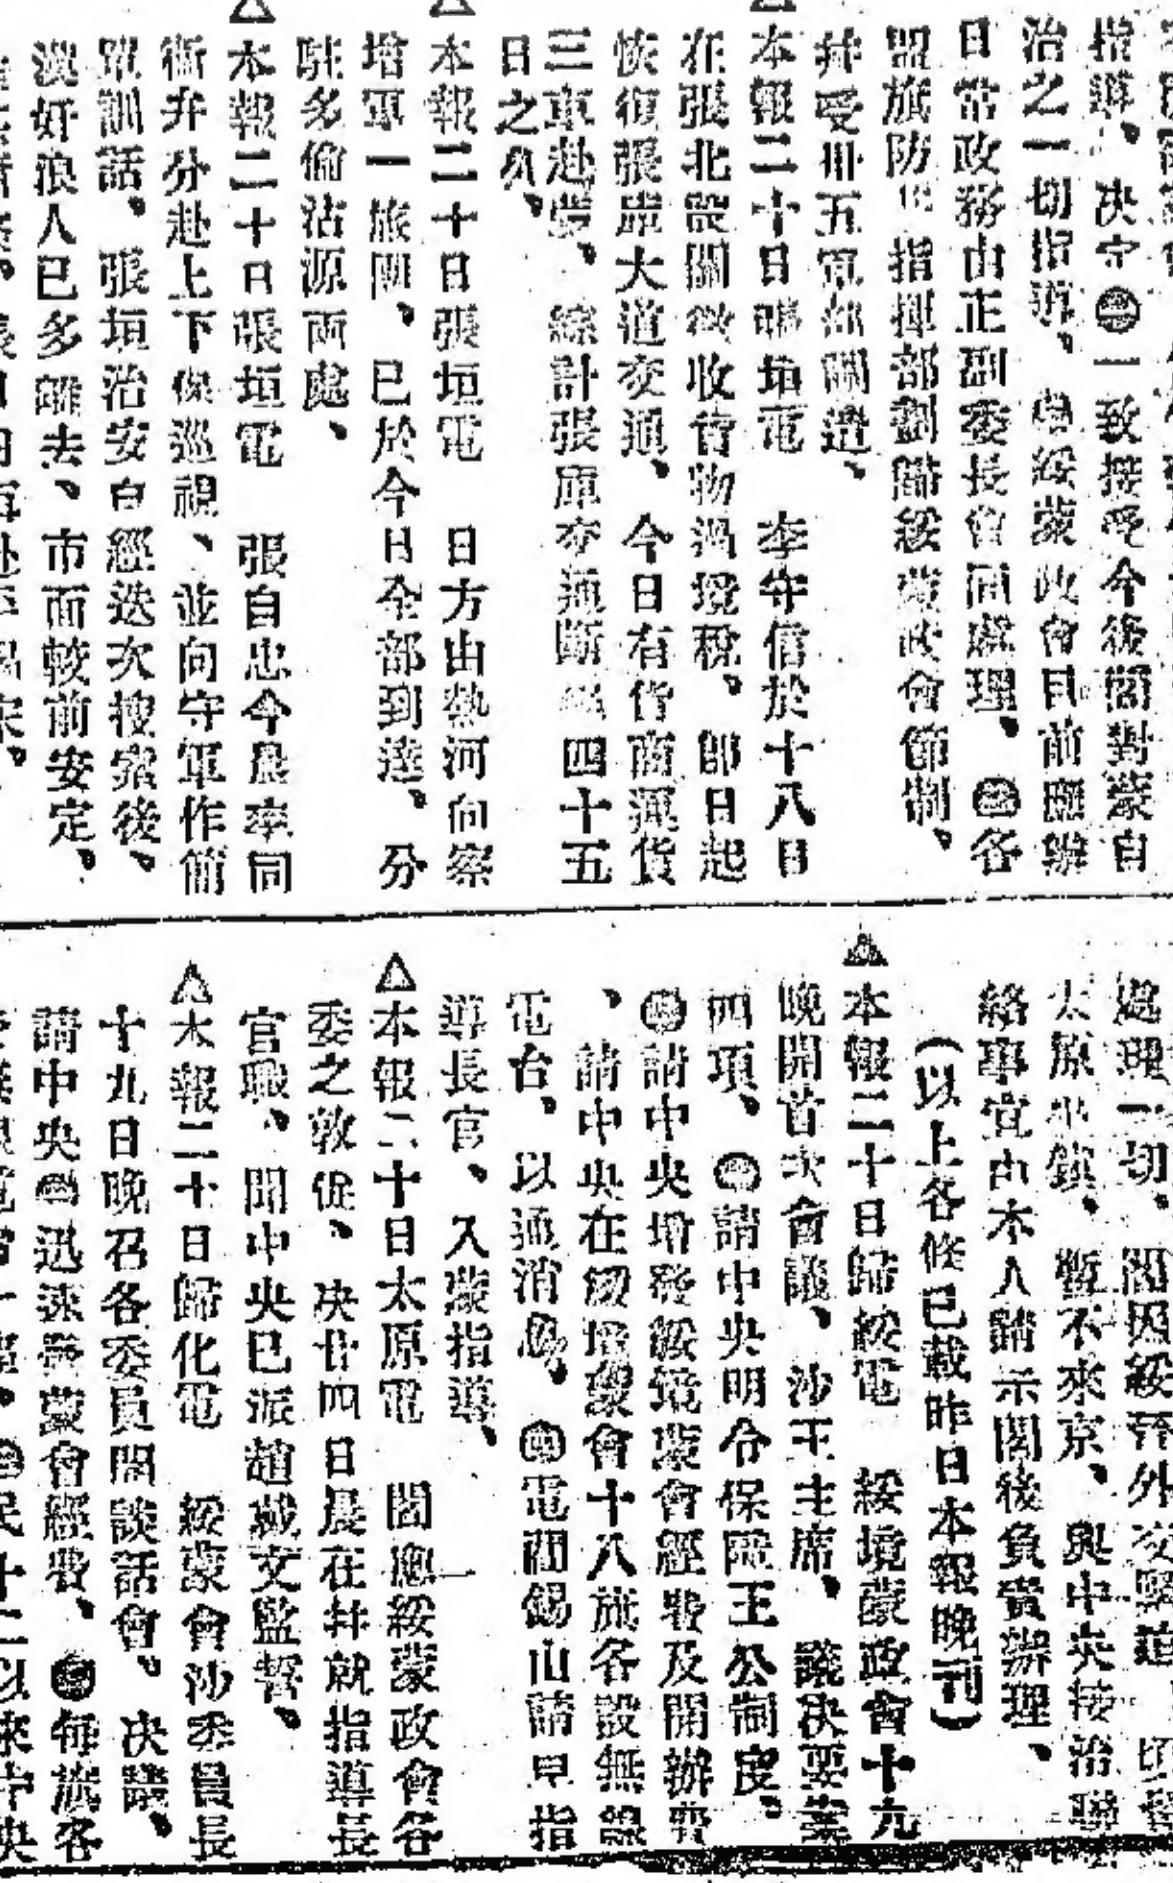 指導、決定㊁一致接受今後閻對蒙自
治之一切指導、㊂綏蒙政會目前應辦
日常政務由正副委長會同處理、㊃各
盟旗防 指揮部劃歸綏蒙政會節制、
幷受卅五軍部調遣、
△本報二十日張垣電　李守信於十八日
在張北設關徵收貨物過境稅、卽日起
恢復張庫大道交通、今日有貨商運貨
三車赴蒙、綜計張庫交通斷絕四十五
日之久、
△本報二十日張垣電　日方由熱河向察
增軍一旅團、已於今日全部到達、分
駐多倫沽源兩處、
△本報二十日張垣電　張自忠今晨率同
衛弁分赴上下保巡視、並向守軍作簡
單訓話、張垣治安自經迭次搜索後、
漢奸浪人已多離去、市面較前安定、
處理一切、閻因綏晉外交緊迫、頃留
太原坐鎮、暫不來京、與中央接洽聯
絡事宜由本人請示閻後負責辦理、
（以上各條已載昨日本報晚刊）
△本報二十日歸綏電　綏境蒙政會十九
晚開首次會議、沙王主席、議決要案
四項、㊀請中央明令保障王公制度、
㊁請中央增發綏境蒙會經費及開辦費
、請中央在綏境蒙會十八旗各設無線
電台、以通消息、㊃電閻錫山請早指
導長官、入蒙指導、
△本報二十日太原電　閻應綏蒙政會各
委之敦促、決廿四日晨在幷就指導長
官職、聞中央已派趙戴文監誓、
△本報二十日歸化電　綏蒙會沙委員長
十九日晚召各委員開談話會、決議、
請中央㊀迅速發蒙會經費、㊁每旗各